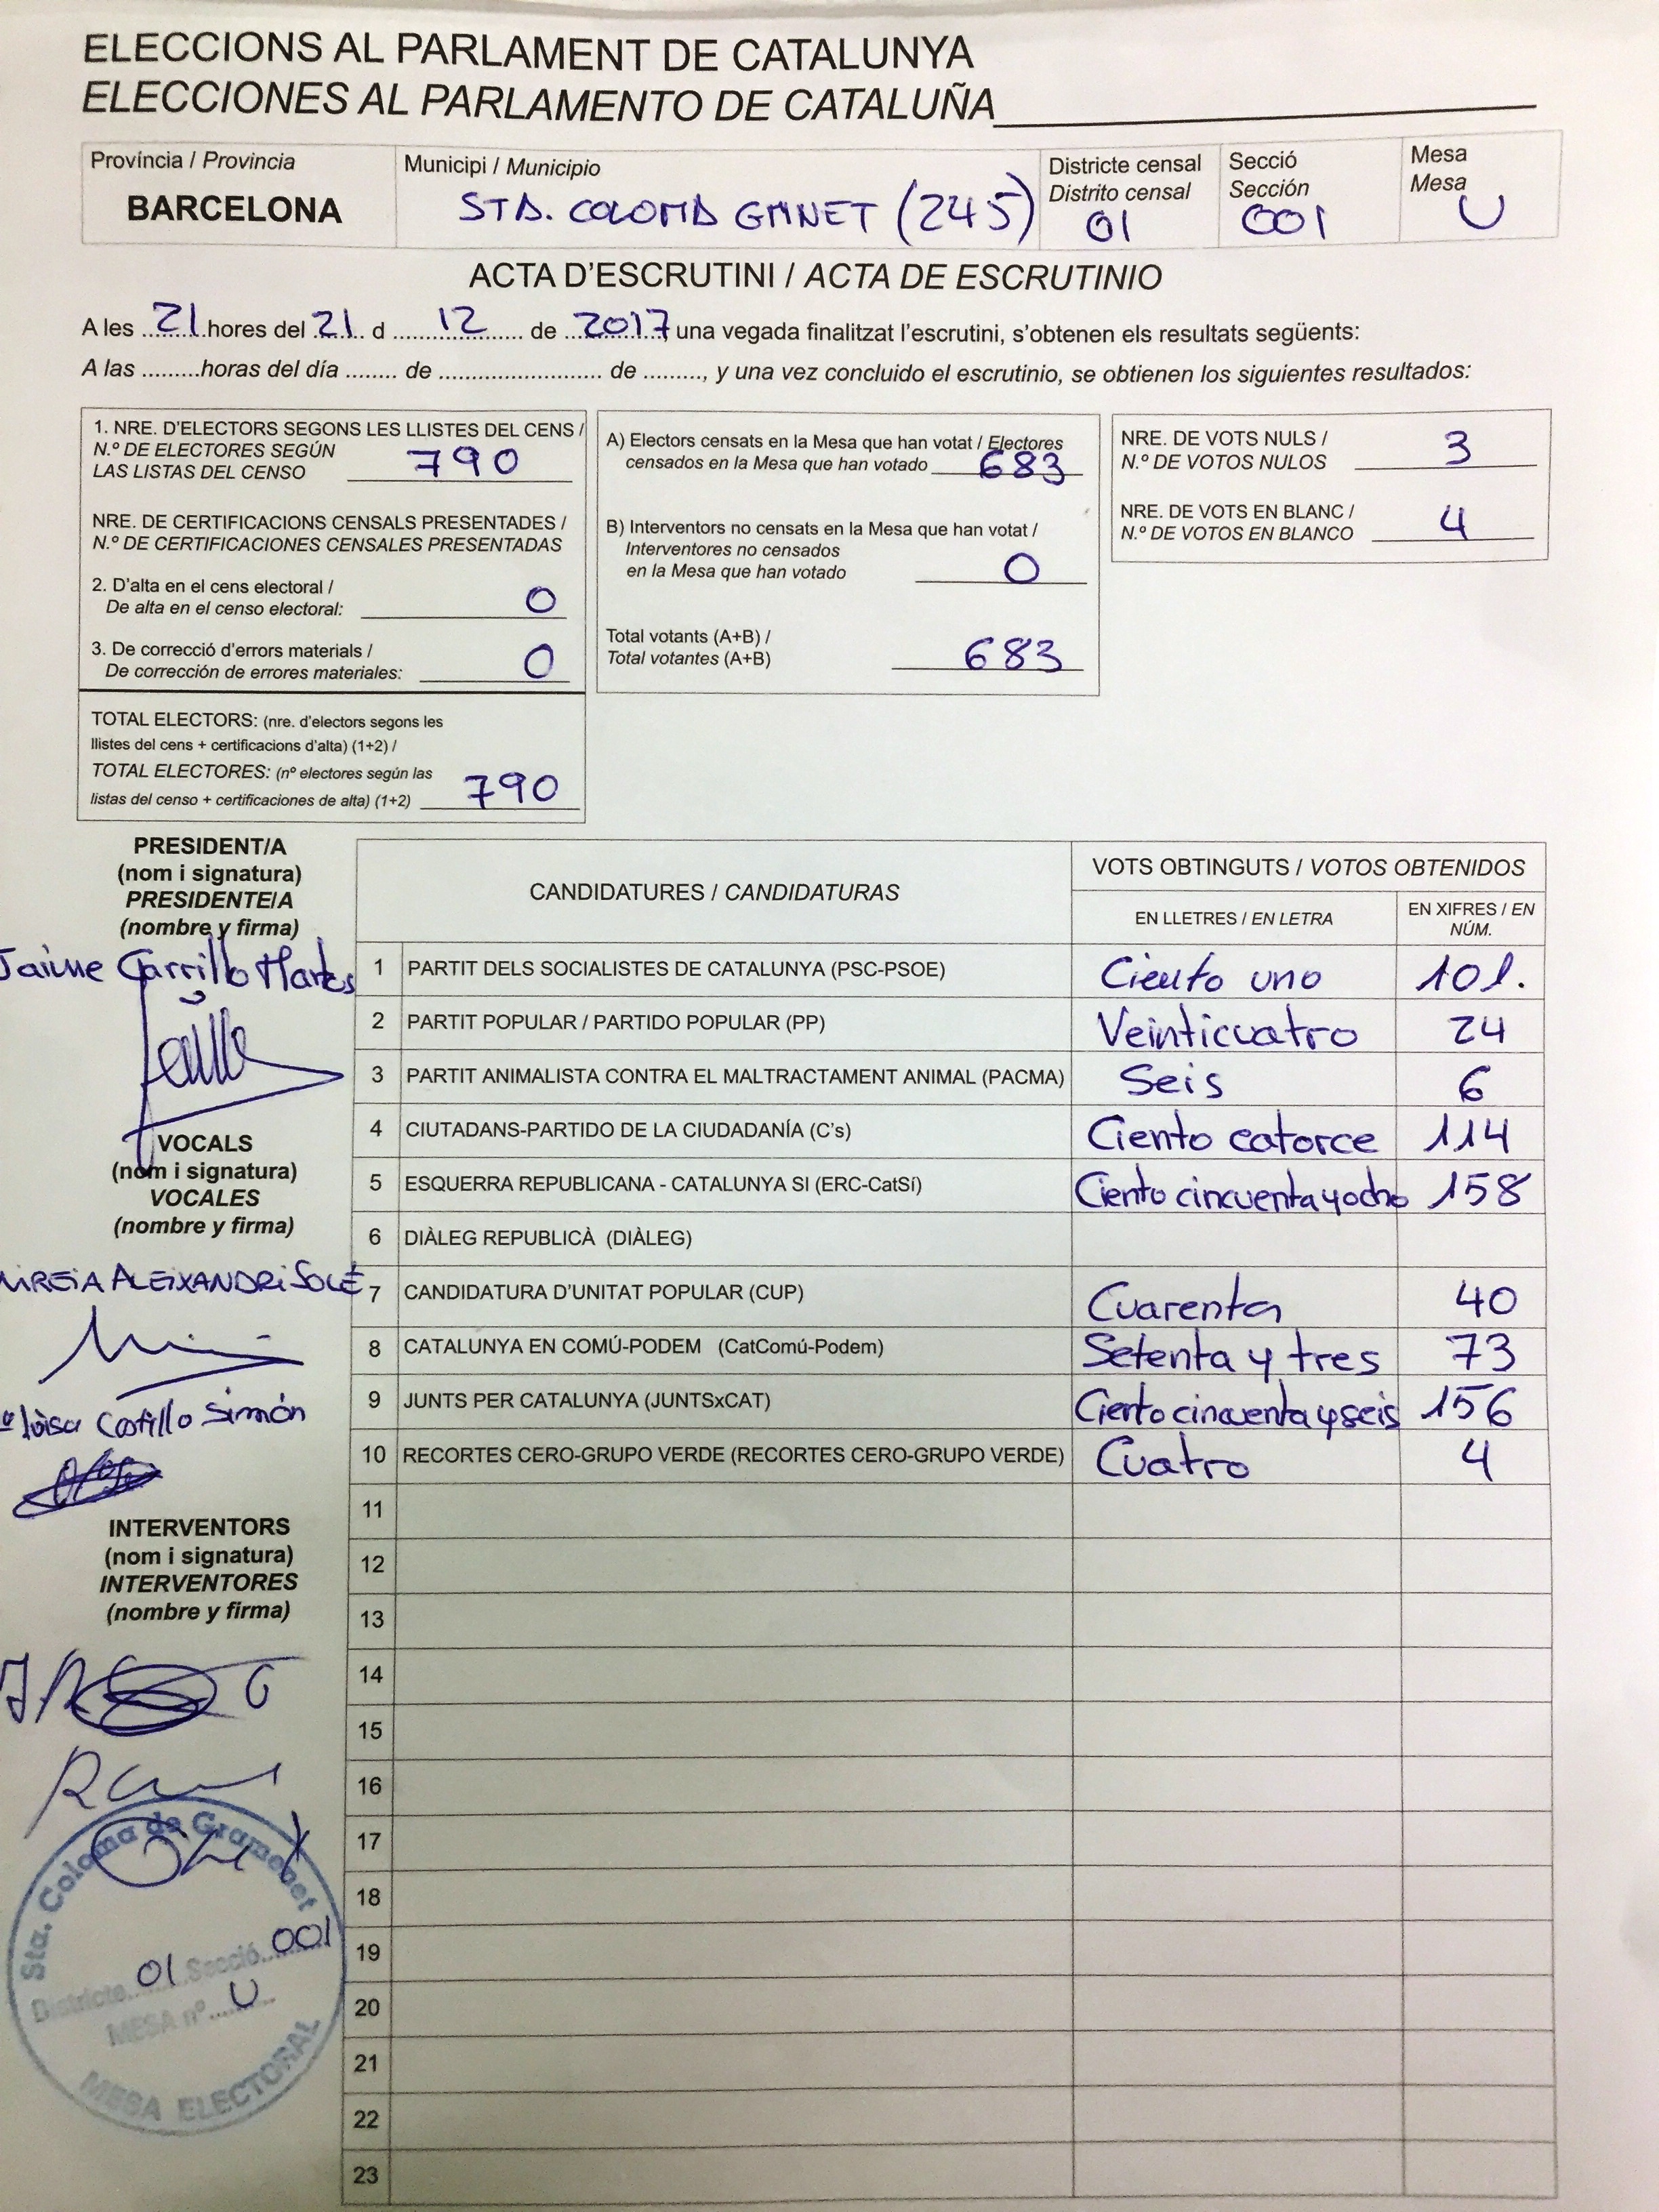 ELECCIONS AL PARLAMENT DE CATALUNYA
ELECCIONES AL PARLAMENTO DE CATALUÑA
Província / Provincia
BARCELONA
Municipi / Municipio
STA. COLOMA GMNET (245)
Districte censal
Distrito censal
01
Secció
Sección
001
Mesa
Mesa
U
ACTA D'ESCRUTINI / ACTA DE ESCRUTINIO
A les 21 hores del 21 d 12 de 2017 una vegada finalitzat l'escrutini, s'obtenen els resultats següents:
A las .........horas del día ........ de ......................... de ........., y una vez concluido el escrutinio, se obtienen los siguientes resultados:
1. NRE. D'ELECTORS SEGONS LES LLISTES DEL CENS /
N.º DE ELECTORES SEGÚN
LAS LISTAS DEL CENSO 790
NRE. DE CERTIFICACIONS CENSALS PRESENTADES /
N.º DE CERTIFICACIONES CENSALES PRESENTADAS
2. D'alta en el cens electoral /
De alta en el censo electoral: 0
3. De correcció d'errors materials /
De corrección de errores materiales: 0
TOTAL ELECTORS: (nre. d'electors segons les
llistes del cens + certificacions d'alta) (1+2) /
TOTAL ELECTORES: (nº electores según las
listas del censo + certificaciones de alta) (1+2) 790
A) Electors censats en la Mesa que han votat / Electores
censados en la Mesa que han votado 683
B) Interventors no censats en la Mesa que han votat /
Interventores no censados
en la Mesa que han votado 0
Total votants (A+B) /
Total votantes (A+B) 683
NRE. DE VOTS NULS /
N.º DE VOTOS NULOS 3
NRE. DE VOTS EN BLANC /
N.º DE VOTOS EN BLANCO 4
PRESIDENT/A
(nom i signatura)
PRESIDENTE/A
(nombre y firma)
Jaime Carrillo
VOCALS
(nom i signatura)
VOCALES
(nombre y firma)
MIREIA ALEIXANDRI SOLÉ
Castillo Simón
INTERVENTORS
(nom i signatura)
INTERVENTORES
(nombre y firma)
Sta. Coloma de Gramenet
Districte 01 Secció 001
MESA nº U
MESA ELECTORAL
CANDIDATURES / CANDIDATURAS
VOTS OBTINGUTS / VOTOS OBTENIDOS
EN LLETRES / EN LETRA
EN XIFRES / EN
NÚM.
1 PARTIT DELS SOCIALISTES DE CATALUNYA (PSC-PSOE) Ciento uno 101.
2 PARTIT POPULAR / PARTIDO POPULAR (PP) Veinticuatro 24
3 PARTIT ANIMALISTA CONTRA EL MALTRACTAMENT ANIMAL (PACMA) Seis 6
4 CIUTADANS-PARTIDO DE LA CIUDADANÍA (C's) Ciento catorce 114
5 ESQUERRA REPUBLICANA - CATALUNYA SI (ERC-CatSí) Ciento cincuenta y ocho 158
6 DIÀLEG REPUBLICÀ (DIÀLEG)
7 CANDIDATURA D'UNITAT POPULAR (CUP) Cuarenta 40
8 CATALUNYA EN COMÚ-PODEM (CatComú-Podem) Setenta y tres 73
9 JUNTS PER CATALUNYA (JUNTSxCAT) Ciento cincuenta y seis 156
10 RECORTES CERO-GRUPO VERDE (RECORTES CERO-GRUPO VERDE) Cuatro 4
11
12
13
14
15
16
17
18
19
20
21
22
23